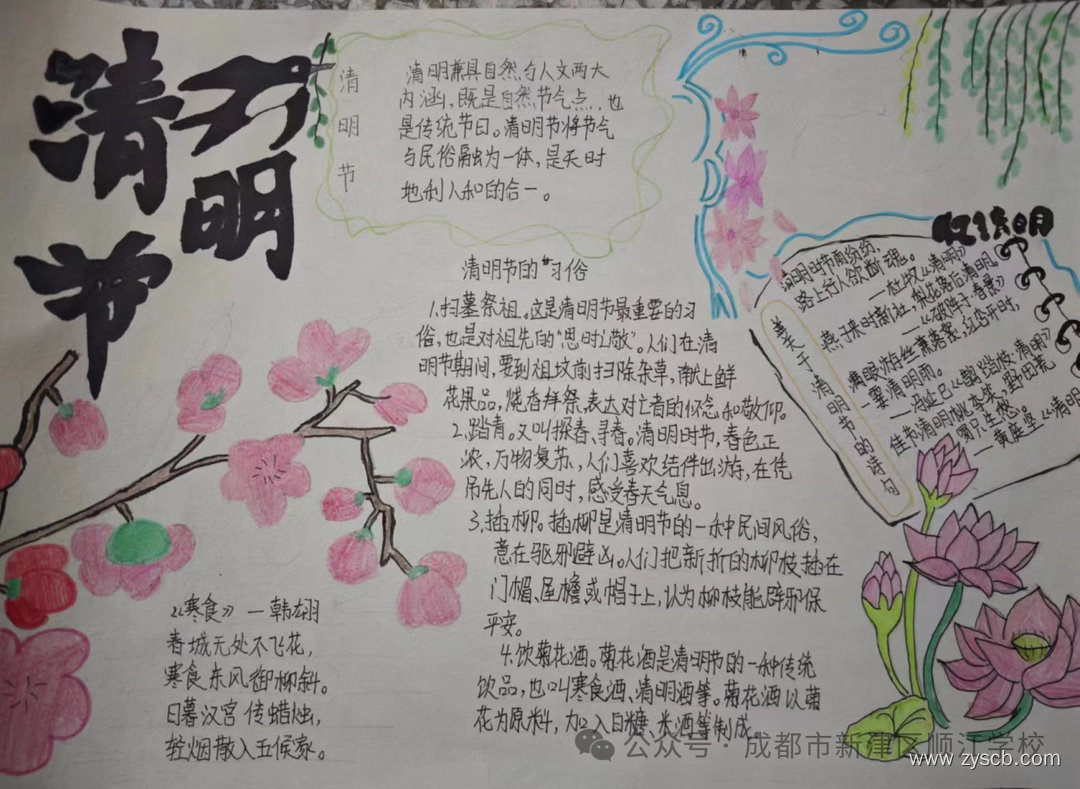 清明节
清
明
节
清明兼具自然与人文两大
内涵,既是自然节气点,也
是传统节日。清明节将节气
与民俗融为一体,是天时
地利人和的合一。
清明节的“习俗
1.扫墓祭祖。这是清明节最重要的习
俗,也是对祖先的“思时之敬”。人们在清
明节期间,要到祖坟前扫除杂草,献上鲜
花果品,烧香拜祭,表达对亡者的怀念和敬仰。
2.踏青。又叫探春、寻春。清明时节,春色正
浓,万物复苏,人们喜欢结伴出游,在凭
吊先人的同时,感受春天气息。
3.插柳。插柳是清明节的一种民间风俗,
意在驱邪避凶。人们把新折的柳枝插在
门楣、屋檐或帽子上,认为柳枝能辟邪保
平安。
4.饮菊花酒。菊花酒是清明节的一种传统
饮品,也叫寒食酒、清明酒等。菊花酒以菊
花为原料,加入白糖、米酒等制成。
《寒食》—韩翃
春城无处不飞花,
寒食东风御柳斜。
日暮汉宫传蜡烛,
轻烟散入五侯家。
关于清明节的诗句
清明时节雨纷纷,
路上行人欲断魂。
—杜牧《清明》
燕子来时新社,梨花落后清明。
—《破阵子·春景》
满眼游丝兼落絮,红杏开时,
一霎清明雨。
—冯延巳《鹊踏枝·清明》
佳节清明桃李笑,野田荒
冢只生愁。
—黄庭坚《清明
公众号·成都市新津区顺江学校
www.zyscb.com